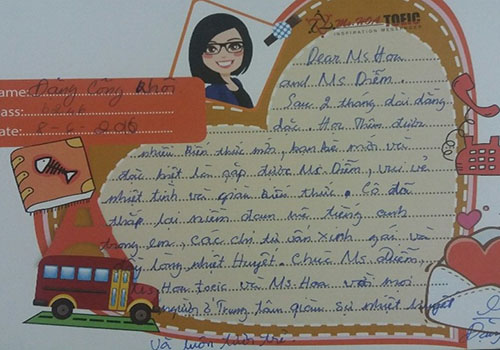 Ms HOA TOEIC
INSPIRATION MESSENGER
Name: Đặng Công Khôi
Class:
Date: 8-6-2016
Dear Ms Hoa
and Ms Diễm.
Sau 2 tháng dài đằng
đẵng Học Thêm được
nhiều kiến thức mới, bạn bè mới và
đặc biệt là gặp được Ms Diễm, vui vẻ
nhiệt tình và giàu kiến thức. Cô đã
thắp lại niềm đam mê tiếng anh
trong em, các chị tư vấn xinh gái và
lòng nhiệt Huyết. Chúc Ms Diễm,
Ms Hoa toeic và Ms Hoa với mọi
người ở Trung tâm giàu sự nhiệt huyết
và luôn tươi trẻ